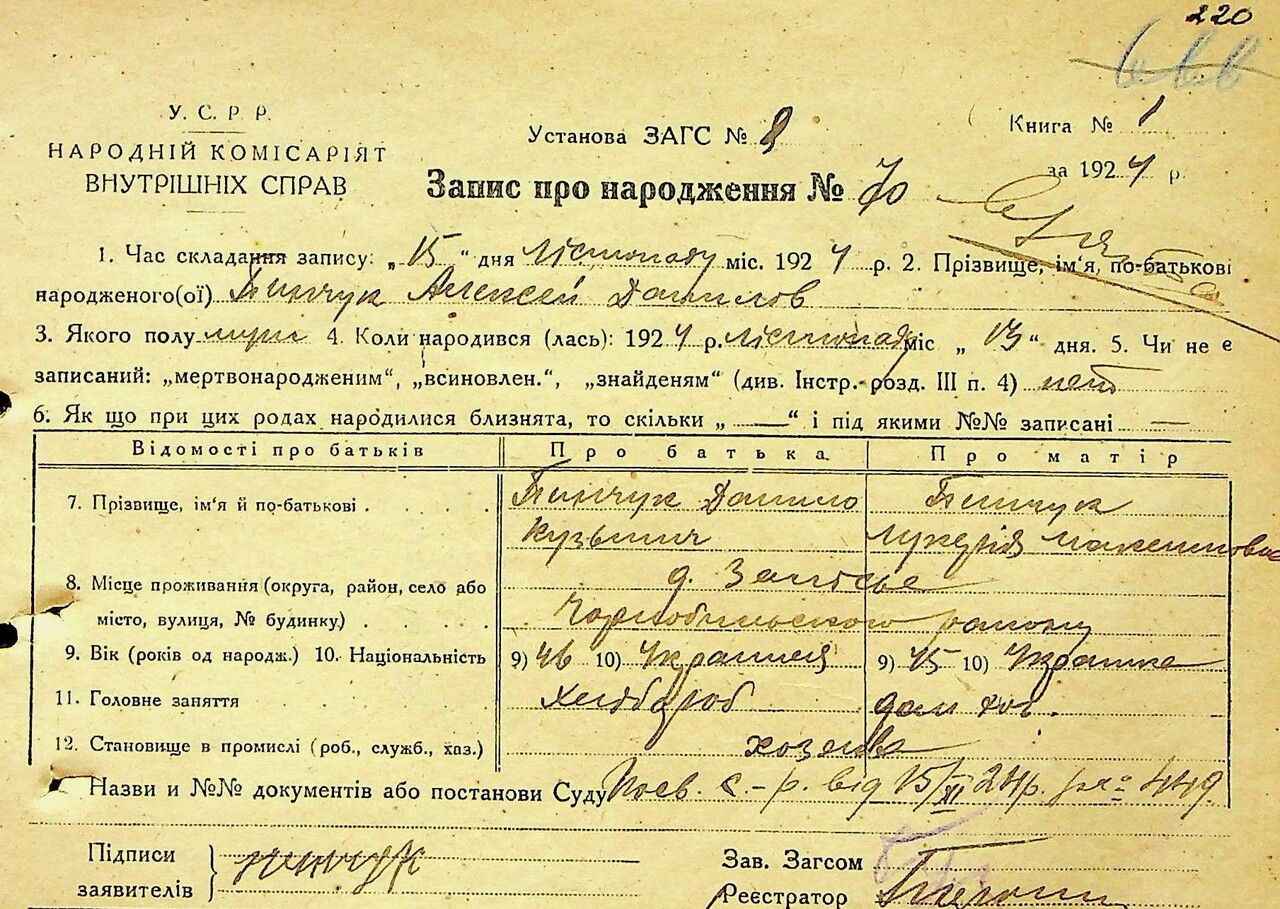 220
У. С. Р. Р.
НАРОДНІЙ КОМІСАРІЯТ
ВНУТРІШНІХ СПРАВ
Установа ЗАГС № 8
Книга № 1
за 1924 р.
Запис про народження № 70
1. Час складання запису: „15“ дня Лістопаду міс. 1924 р. 2. Прізвище, ім'я, по-батькові
народженого(ої) Пинчук Алексей Данилов
3. Якого полу муж 4. Коли народився (лась): 1924 р. лістопаду міс „13“ дня. 5. Чи не є
записаний: „мертвонародженим“, „всиновлен.“, „знайденям“ (див. Інстр. розд. III п. 4) нет
6. Як що при цих родах народилися близнята, то скільки „—“ і під якими №№ записані —
Відомості про батьків Про батька Про матір
7. Прізвище, ім'я й по-батькові Пинчук Данило Пинчук
Кузьмич Лукерія
8. Місце проживання (округа, район, село або д. Запосье
місто, вулиця, № будинку) Чорнобильского району
9. Вік (років од народж.) 10. Національність 9) 46 10) Украинец 9) 45 10) Украинка
11. Головне заняття хлібороб дом. хоз.
12. Становище в промислі (роб., служб., хаз.) хозяева
Назви и №№ документів або постанови Суду С.-р. від 15/XI 24 р. за № 449
Підписи
заявителів Пинчук
Зав. Загсом
Реєстратор